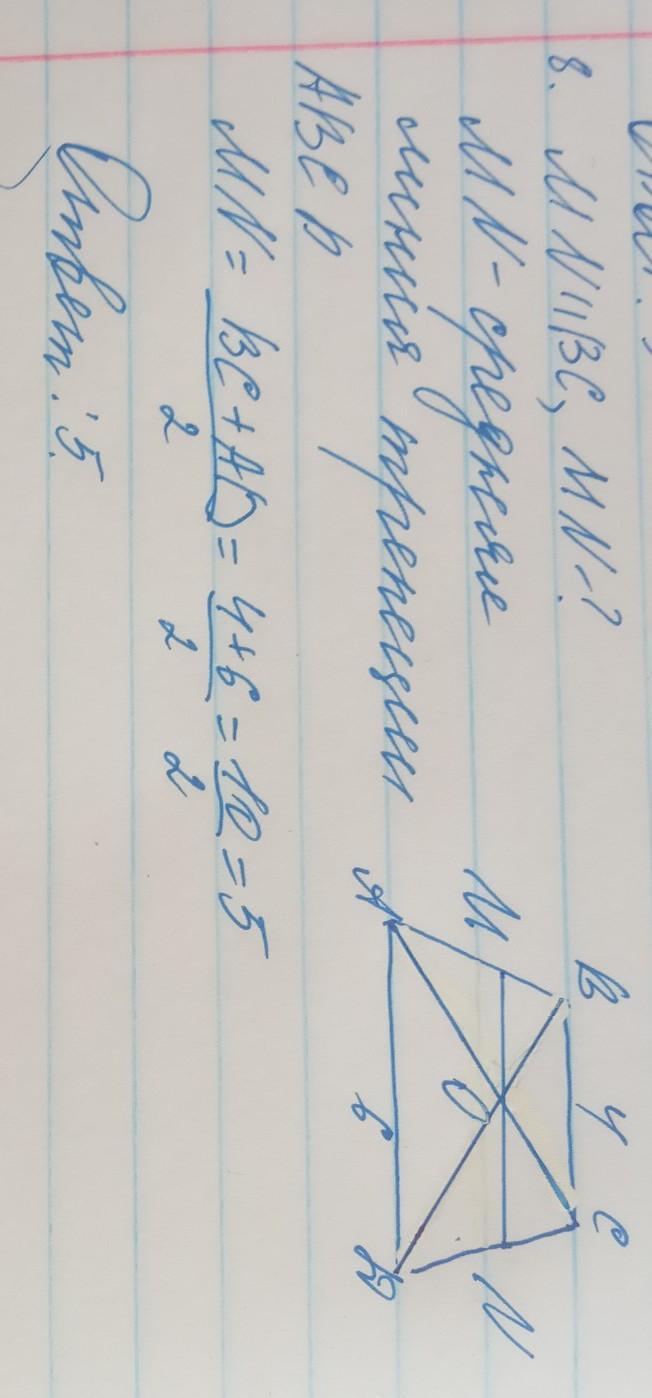 8. MN||BC, MN-?
MN - средняя
линия трапеции
ABCD
MN = BC + AD / 2 = 4+6 / 2 = 10 / 2 = 5
Ответ: 5
B 4 C
M N
O
A 6 D